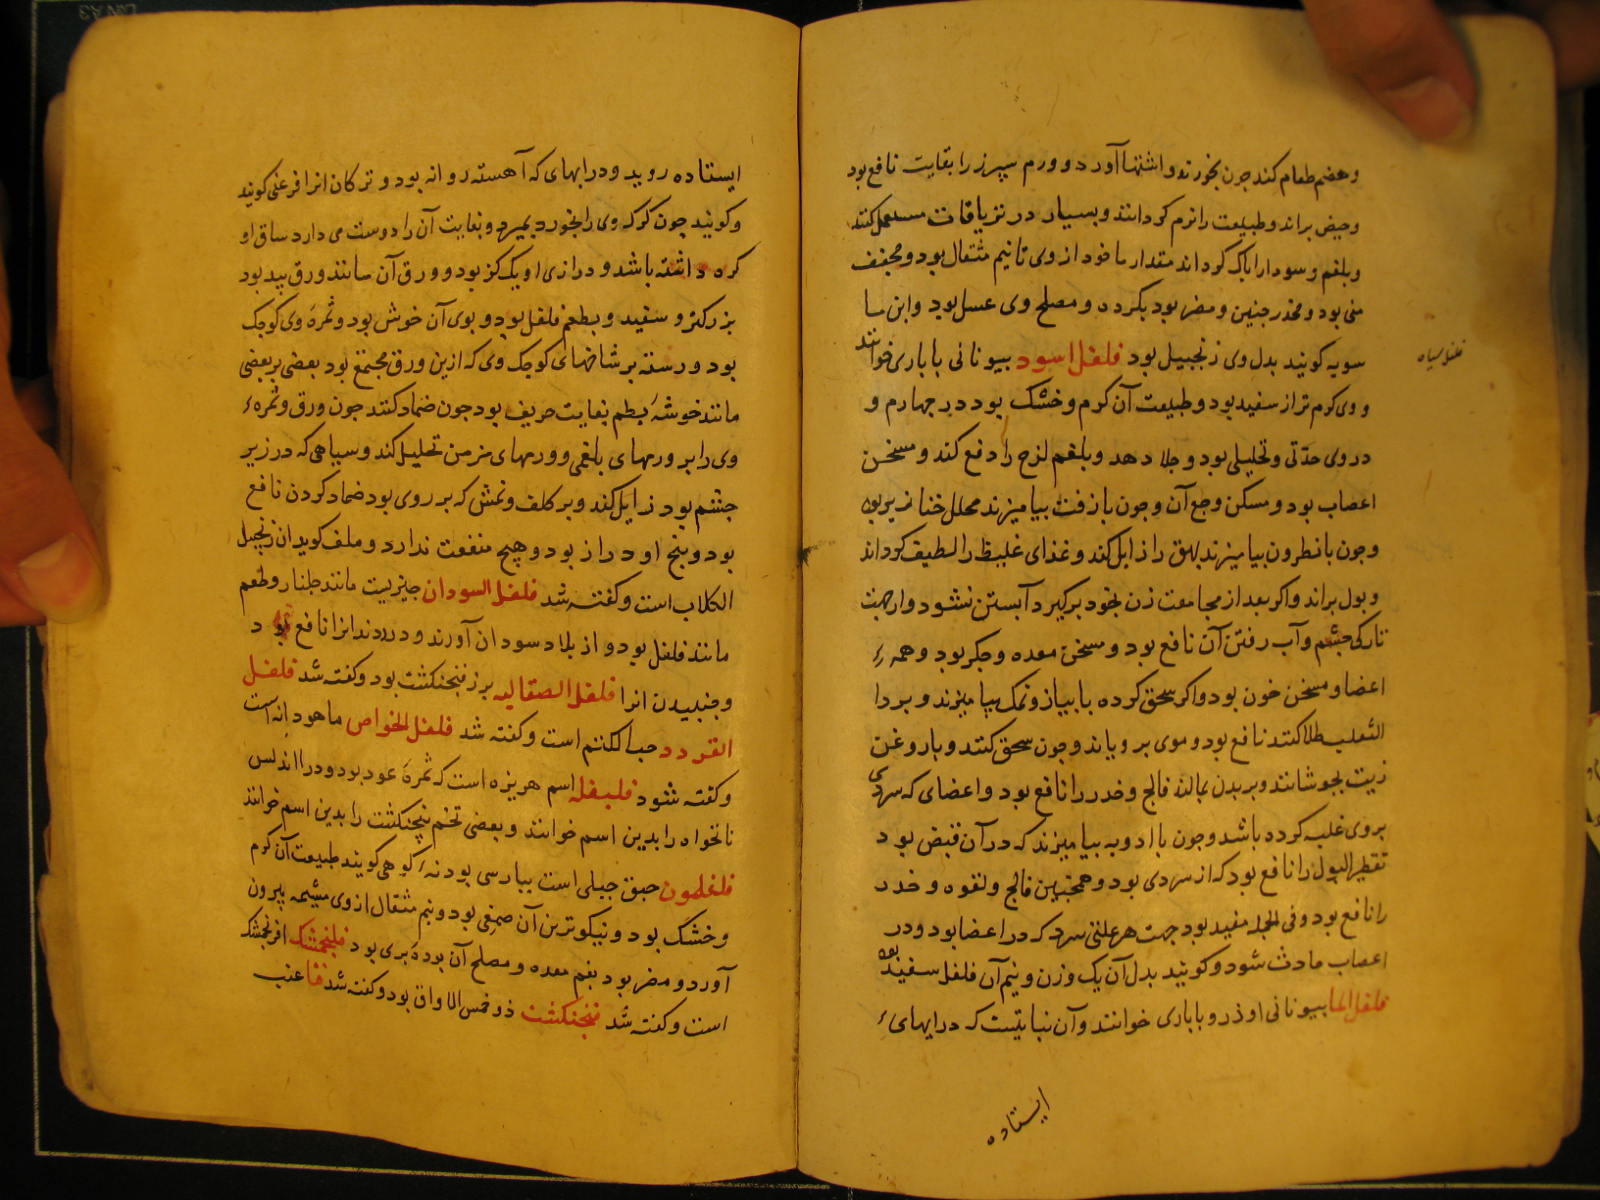 و هضم طعام کند چون بخورند و اشتها آورد و ورم سپرز را بغایت نافع بود
و حیض براند و طبیعت را نرم کرداند و بسیار در تریاقات مستعمل کنند
و بلغم و سودا را پاک کرداند مقدار ماخوذ از وی تا نیم مثقال بود و مجفف
منی بود و مخدر جنین و مضر بود بکرده و مصلح وی عسل بود و ابن ما
سویه کویند بدل وی زنجبیل بود فلفل اسود بیونانی باباری خوانند
فلفل سیاه
و وی کرم تر از سفید بود و طبیعت آن کرم و خشک بود در چهارم و
در وی حدّتی و تحلیلی بود و جلا دهد و بلغم لزج را دفع کند و مسخن
اعصاب بود و مسکن وجع آن و چون با زفت بیامیزند محلل خنازیر بود
و چون با نطرون بیامیزند بهق را زایل کند و غذای غلیظ را لطیف کرداند
و بول براند و اکر بعد از مجامعت زن بخود برکیرد آبستن نشود و از جهت
تاریکی چشم و آب رفتن آن نافع بود و مسخن معده و جکر بود و همه
اعضا و مسخن خون بود و اکر سحق کرده با پیاز و نمک بیامیزند و بر داء
الثعلب طلا کنند نافع بود و موی برویاند و چون سحق کنند و با روغن
زیت بجوشانند و بر بدن بمالند فالج و خدر را نافع بود و اعضای که سردی
بر وی غلبه کرده باشد و چون با ادویه بیامیزند که در آن قبض بود
تقطیر البول را نافع بود که از سردی بود و همچنین فالج و لقوه و خدر
را نافع بود و فی الجمله مفید بود جهت هر علتی سرد که در اعضا بود و در
اعصاب حادث شود و کویند بدل آن یک وزن و نیم آن فلفل سفید بود
فلفل الما بیونانی اوذرو باباری خوانند و آن نباتیست که در ابهای
ایستاده
ایستاده روید و در ابهای که آهسته روانه بود و ترکان انرا فرعنی کویند
و کویند چون کرک وی را بخورد بمیرد و بغایت آن را دوست می دارد ساق او
کره داشته باشد و درازی او یک کز بود و ورق آن مانند ورق بید بود
بزرکتر و سفید و بطعم فلفل بود و بوی آن خوش بود و ثمرهٔ وی کوچک
بود و رسته بر شاخهای کوچک وی که از بن ورق مجتمع بود بعضی بر بعضی
مانند خوشهٔ بطم بغایت حریف بود چون ضماد کنند چون ورق و ثمرهٔ
وی را بر ورمهای بلغمی و ورمهای مزمن تحلیل کند و سیاهی که در زیر
چشم بود زایل کند و بر کلف و نمش که بر روی بود ضماد کردن نافع
بود و بیخ او دراز بود و هیچ منفعت ندارد و ملف کوید ان زنجبیل
الکلاب است و کفته شد فلفل السودان چیزیست مانند جلنار و طعم
مانند فلفل بود و از بلاد سودان آورند و درد دندانرا نافع بود
و جنبیدن انرا فلفل الصقالیه بزر فنجنکشت بود و کفته شد فلفل
القردد حب الکتم است و کفته شد فلفل الخواص ماهودانه است
و کفته شود فلیفله اسم هریزه است که ثمرهٔ عود بود و در اندلس
نانخواه را بدین اسم خوانند و بعضی تخم پنجنکشت را بدین اسم خوانند
فلغلمون حبق جبلی است بپارسی پودنهٔ کوهی کویند طبیعت آن کرم
و خشک بود و نیکوترین آن صمغی بود و نیم مثقال از وی مشیمه بیرون
آورد و مضر بود بفم معده و مصلح آن بوده بری بود فلنجمشک افرنجمشک
است و کفته شد فنجنکشت ذو خمس الاوراق بود و کفته شد فنا عنب